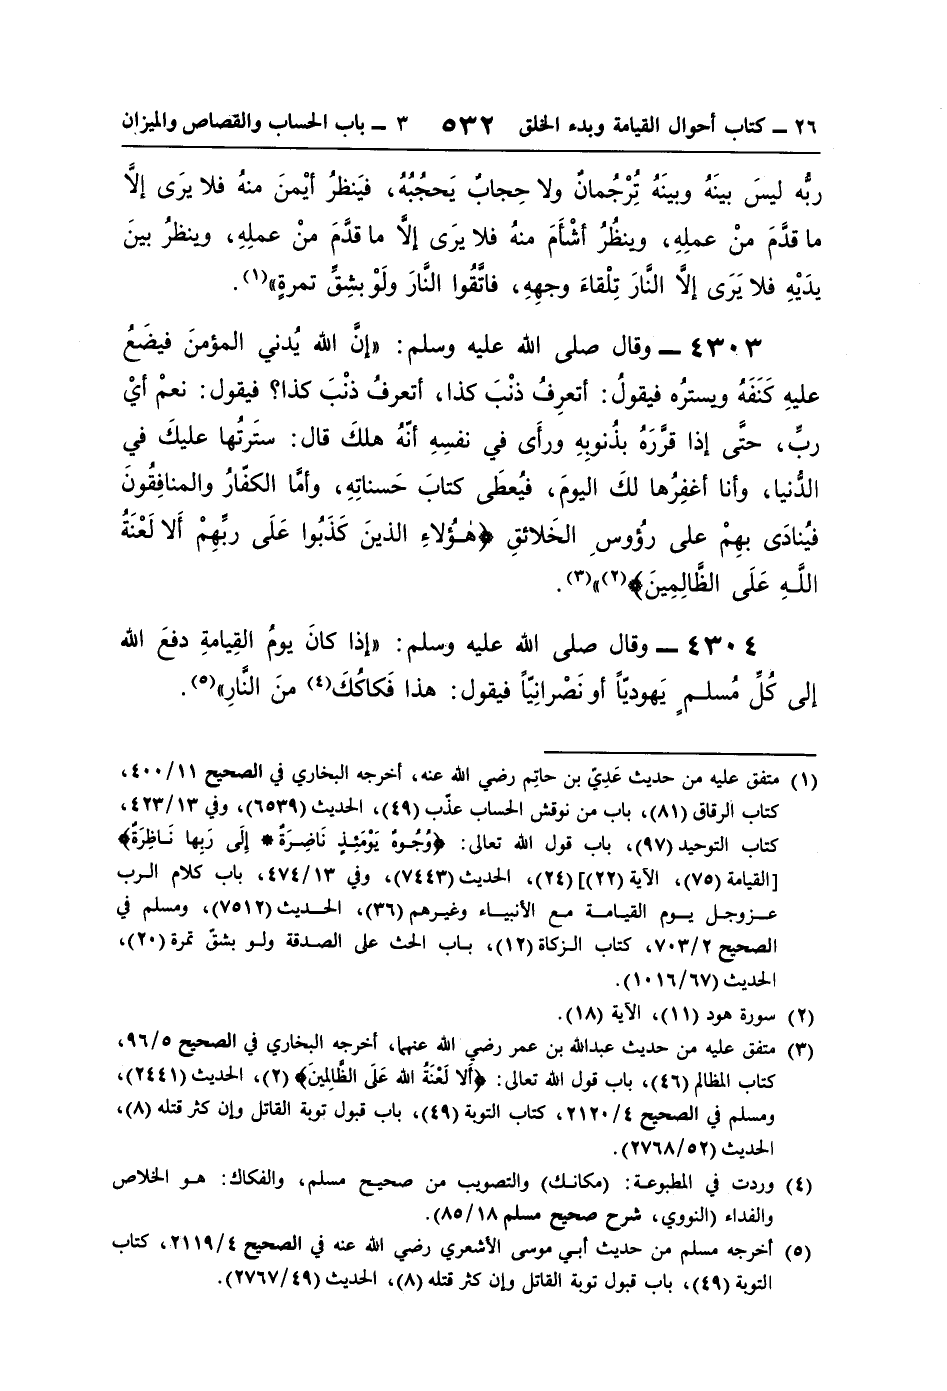 ٢٦ ــ كتاب أحوال القيامة وبدء الخلق ٥٣٢ ٣ ــ باب الحساب والقصاص والميزان
ربُّه ليسَ بينَهُ وبينَهُ تُرْجُمانٌ ولا حِجابٌ يَحجُبُهُ، فيَنظرُ أيْمنَ منهُ فلا يرَى إلَّا
ما قدَّمَ منْ عملِهِ، وينظُرُ أشْأَمَ منهُ فلا يرَى إلَّا ما قدَّمَ منْ عملِهِ، وينظرُ بينَ
يدَيْهِ فلا يَرَى إلَّا النَّارَ تِلْقاءَ وجهِهِ، فاتَّقُوا النَّارَ ولَوْ بشِقِّ تمرةٍ»(١).
٤٣٠٣ ــ وقال صلى الله عليه وسلم: «إنَّ الله يُدني المؤمنَ فيضَعُ
عليهِ كَنَفَهُ ويسترُه فيقولُ: أتعرِفُ ذنْبَ كذا، أتعرفُ ذنْبَ كذا؟ فيقول: نعمْ أيْ
ربِّ، حتَّى إذا قرَّرَهُ بذُنوبِهِ ورأَى في نفسِهِ أنَّهُ هلكَ قال: سترتُها عليكَ في
الدُّنيا، وأنا أغفِرُها لكَ اليومَ، فيُعطَى كتابَ حَسناتِهِ، وأمَّا الكفَّارُ والمنافِقُونَ
فيُنادَى بهِمْ على رؤُوسِ الخَلائقِ ﴿هٰؤُلاءِ الذينَ كَذَبُوا عَلَى ربِّهِمْ ألا لَعْنَةُ
اللَّهِ عَلَى الظَّالِمِينَ﴾(٢)»(٣).
٤٣٠٤ ــ وقال صلى الله عليه وسلم: «إذا كانَ يومُ القِيامةِ دفعَ الله
إلى كُلِّ مُسلمٍ يَهوديّاً أو نَصْرانِيّاً فيقول: هذا فَكاكُكَ(٤) منَ النَّارِ»(٥).
(١) متفق عليه من حديث عَدِيّ بن حاتِم رضي الله عنه، أخرجه البخاري في الصحيح ٤٠٠/١١،
كتاب الرقاق (٨١)، باب من نوقش الحساب عذّب (٤٩)، الحديث (٦٥٣٩)، وفي ٤٢٣/١٣،
كتاب التوحيد (٩٧)، باب قول الله تعالى: ﴿وُجُوهٌ يَوْمَئِذٍ نَاضِرَةٌ * إِلَى رَبِها نَاظِرَةٌ﴾
[القيامة (٧٥)، الآية (٢٢)] (٢٤)، الحديث (٧٤٤٣)، وفي ٤٧٤/١٣، باب كلام الرب
عزوجل يوم القيامة مع الأنبياء وغيرهم (٣٦)، الحديث (٧٥١٢)، ومسلم في
الصحيح ٧٠٣/٢، كتاب الزكاة (١٢)، باب الحث على الصدقة ولو بشقّ تمرة (٢٠)،
الحديث (١٠١٦/٦٧).
(٢) سورة هود (١١)، الآية (١٨).
(٣) متفق عليه من حديث عبدالله بن عمر رضي الله عنهما، أخرجه البخاري في الصحيح ٩٦/٥،
كتاب المظالم (٤٦)، باب قول الله تعالى: ﴿أَلا لَعْنَةُ الله عَلَى الظَّالِمِينَ﴾ (٢)، الحديث (٢٤٤١)،
ومسلم في الصحيح ٢١٢٠/٤، كتاب التوبة (٤٩)، باب قبول توبة القاتل وإن كثر قتله (٨)،
الحديث (٢٧٦٨/٥٢).
(٤) وردت في المطبوعة: (مكانك) والتصويب من صحيح مسلم، والفكاك: هو الخلاص
والفداء (النووي، شرح صحيح مسلم ٨٥/١٨).
(٥) أخرجه مسلم من حديث أبي موسى الأشعري رضي الله عنه في الصحيح ٢١١٩/٤، كتاب
التوبة (٤٩)، باب قبول توبة القاتل وإن كثر قتله (٨)، الحديث (٢٧٦٧/٤٩).